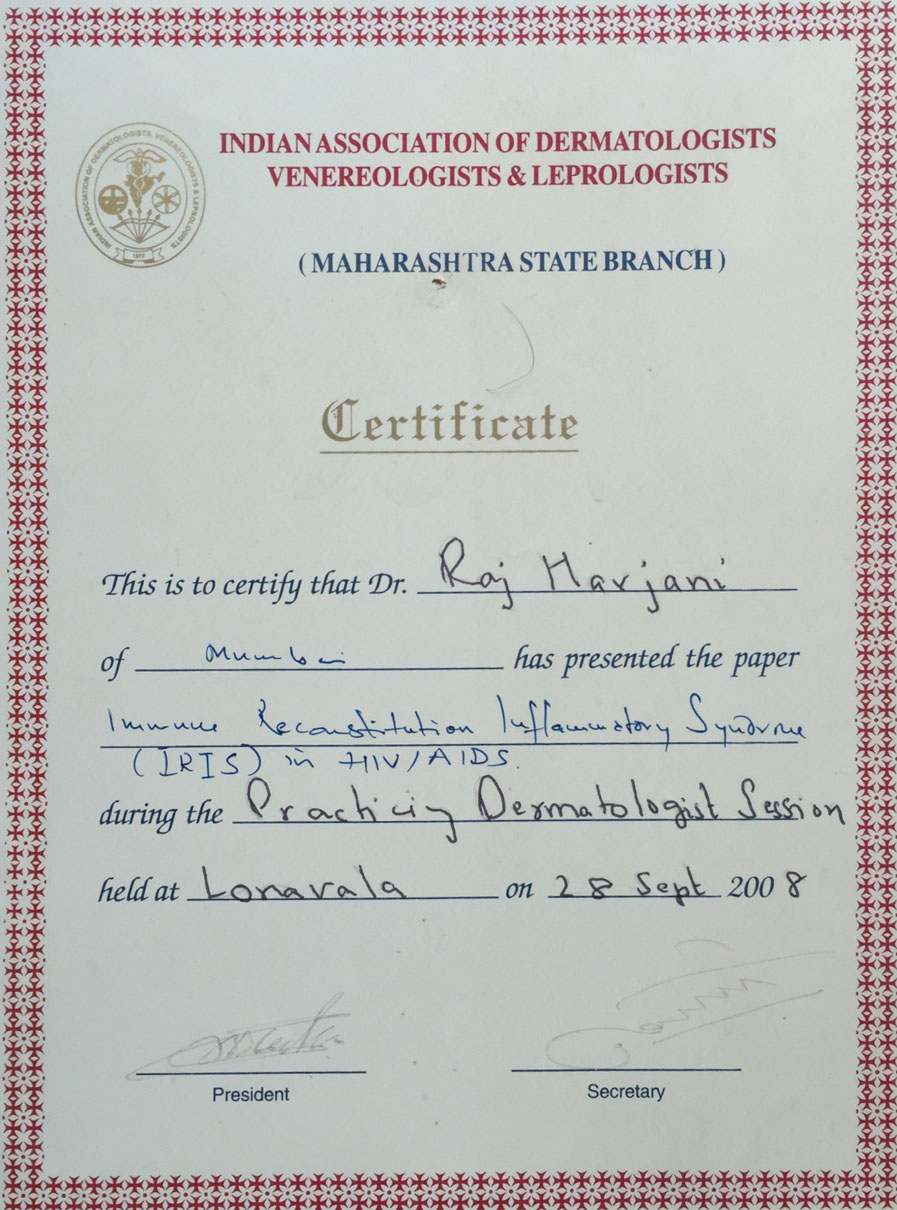 INDIAN ASSOCIATION OF DERMATOLOGISTS, VENEREOLOGISTS & LEPROLOGISTS
1972
INDIAN ASSOCIATION OF DERMATOLOGISTS
VENEREOLOGISTS & LEPROLOGISTS
( MAHARASHTRA STATE BRANCH )
Certificate
This is to certify that Dr. Raj Harjani
of Mumbai has presented the paper
Immune Reconstitution Inflammatory Syndrome
(IRIS) in HIV/AIDS.
during the Practicing Dermatologist Session
held at Lonavala on 28 Sept 2008
President Secretary